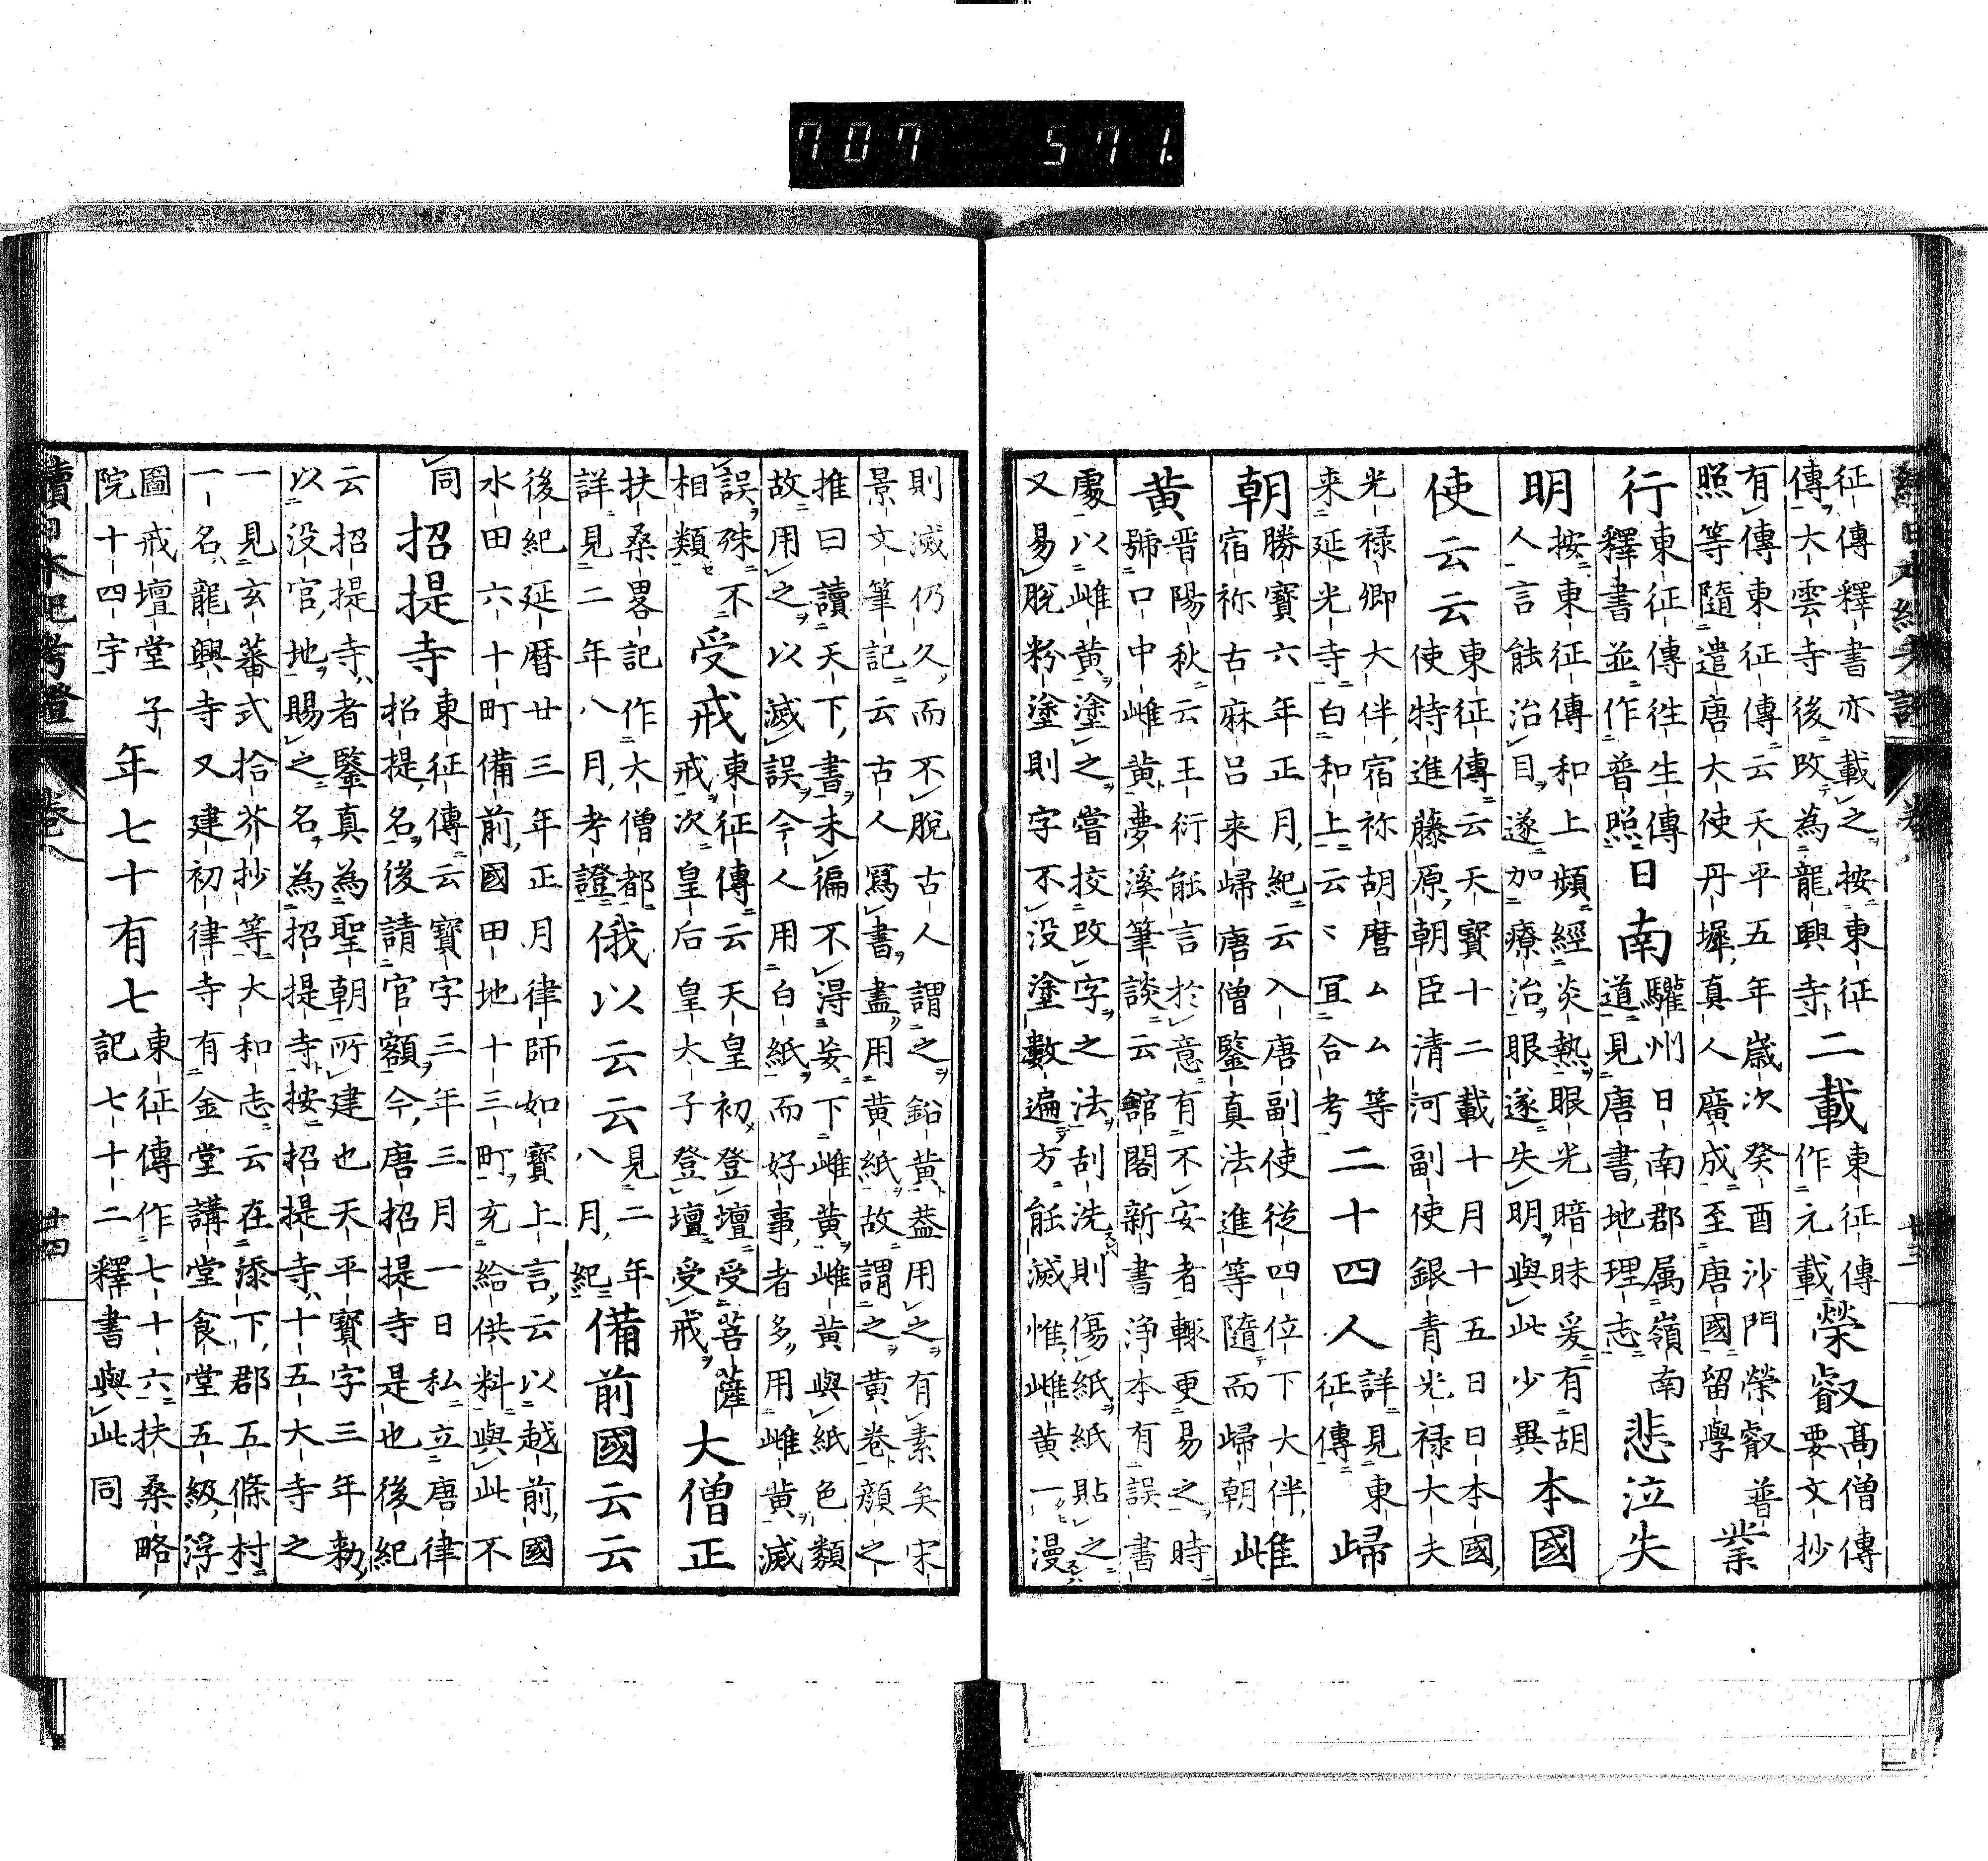 707 571
征傳釋書亦載之按東征
傳大雲寺後改為龍興寺
二載
東征傳
作元載
榮叡
高僧傳
要文抄
有傳東征傳云天平五年歳次癸酉沙門榮叡普
照等隨遣唐大使丹墀真人廣成至唐國留學
業
行
東征傳徃生傳
釋書並作普照
日南
驩州日南郡属嶺南
道見唐書地理志
悲泣失
明
按東征傳和上頻經炎熱眼光暗昧爰有胡
人言能治目遂加療治眼遂失明與此少異
本國
使云云
東征傳云天寶十二載十月十五日日本國
使特進藤原朝臣清河副使銀青光禄大夫
光禄卿大伴宿祢胡麿厶厶等
来延光寺白和上云〻冝合考
二十四人
詳見東
征傳
歸
朝
勝寶六年正月紀云入唐副使従四位下大伴
宿祢古麻呂来歸唐僧鑒真法進等隨而歸朝
雌
黄
晋陽秋云王衍能言於意有不安者輙更易之時
號口中雌黄夢溪筆談云舘閣新書浄本有誤書
處以雌黄塗之嘗挍改字之法刮洗則傷紙紙貼之
又易脫粉塗則字不没塗數遍方能滅惟雌黄一漫
則滅仍久而不脫古人謂之鉛黄葢用之有素矣宋
景文筆記云古人寫書盡用黄紙故謂之黄卷顔之
推曰讀天下書未徧不淂妄下雌黄雌黄與紙色類
故用之以滅誤今人用白紙而好事者多用雌黄滅
誤殊不
相類
受戒
東征傳云天皇初登壇受菩薩
戒次皇后皇太子登壇受戒
大僧正
扶桑畧記作大僧都
詳見二年八月考證
俄以云云
見二年
八月紀
備前國云云
後紀延暦廿三年正月律師如寶上言云以越前國
水田六十町備前國田地十三町充給供料與此不
同
招提寺
東征傳云寶字三年三月一日私立唐律
招提名後請官額今唐招提寺是也後紀
云招提寺者鑒真為聖朝所建也天平寶字三年勅
以没官地賜之名為招提寺按招提寺十五大寺之
一見玄蕃式拾芥抄等大和志云在添下郡五條村
一名龍興寺又建初律寺有金堂講堂食堂五級浮
圖戒壇堂子
院十四宇
年七十有七
東征傳作七十六扶桑略
記七十二釋書與此同
續日本紀考證
卷八
廿四